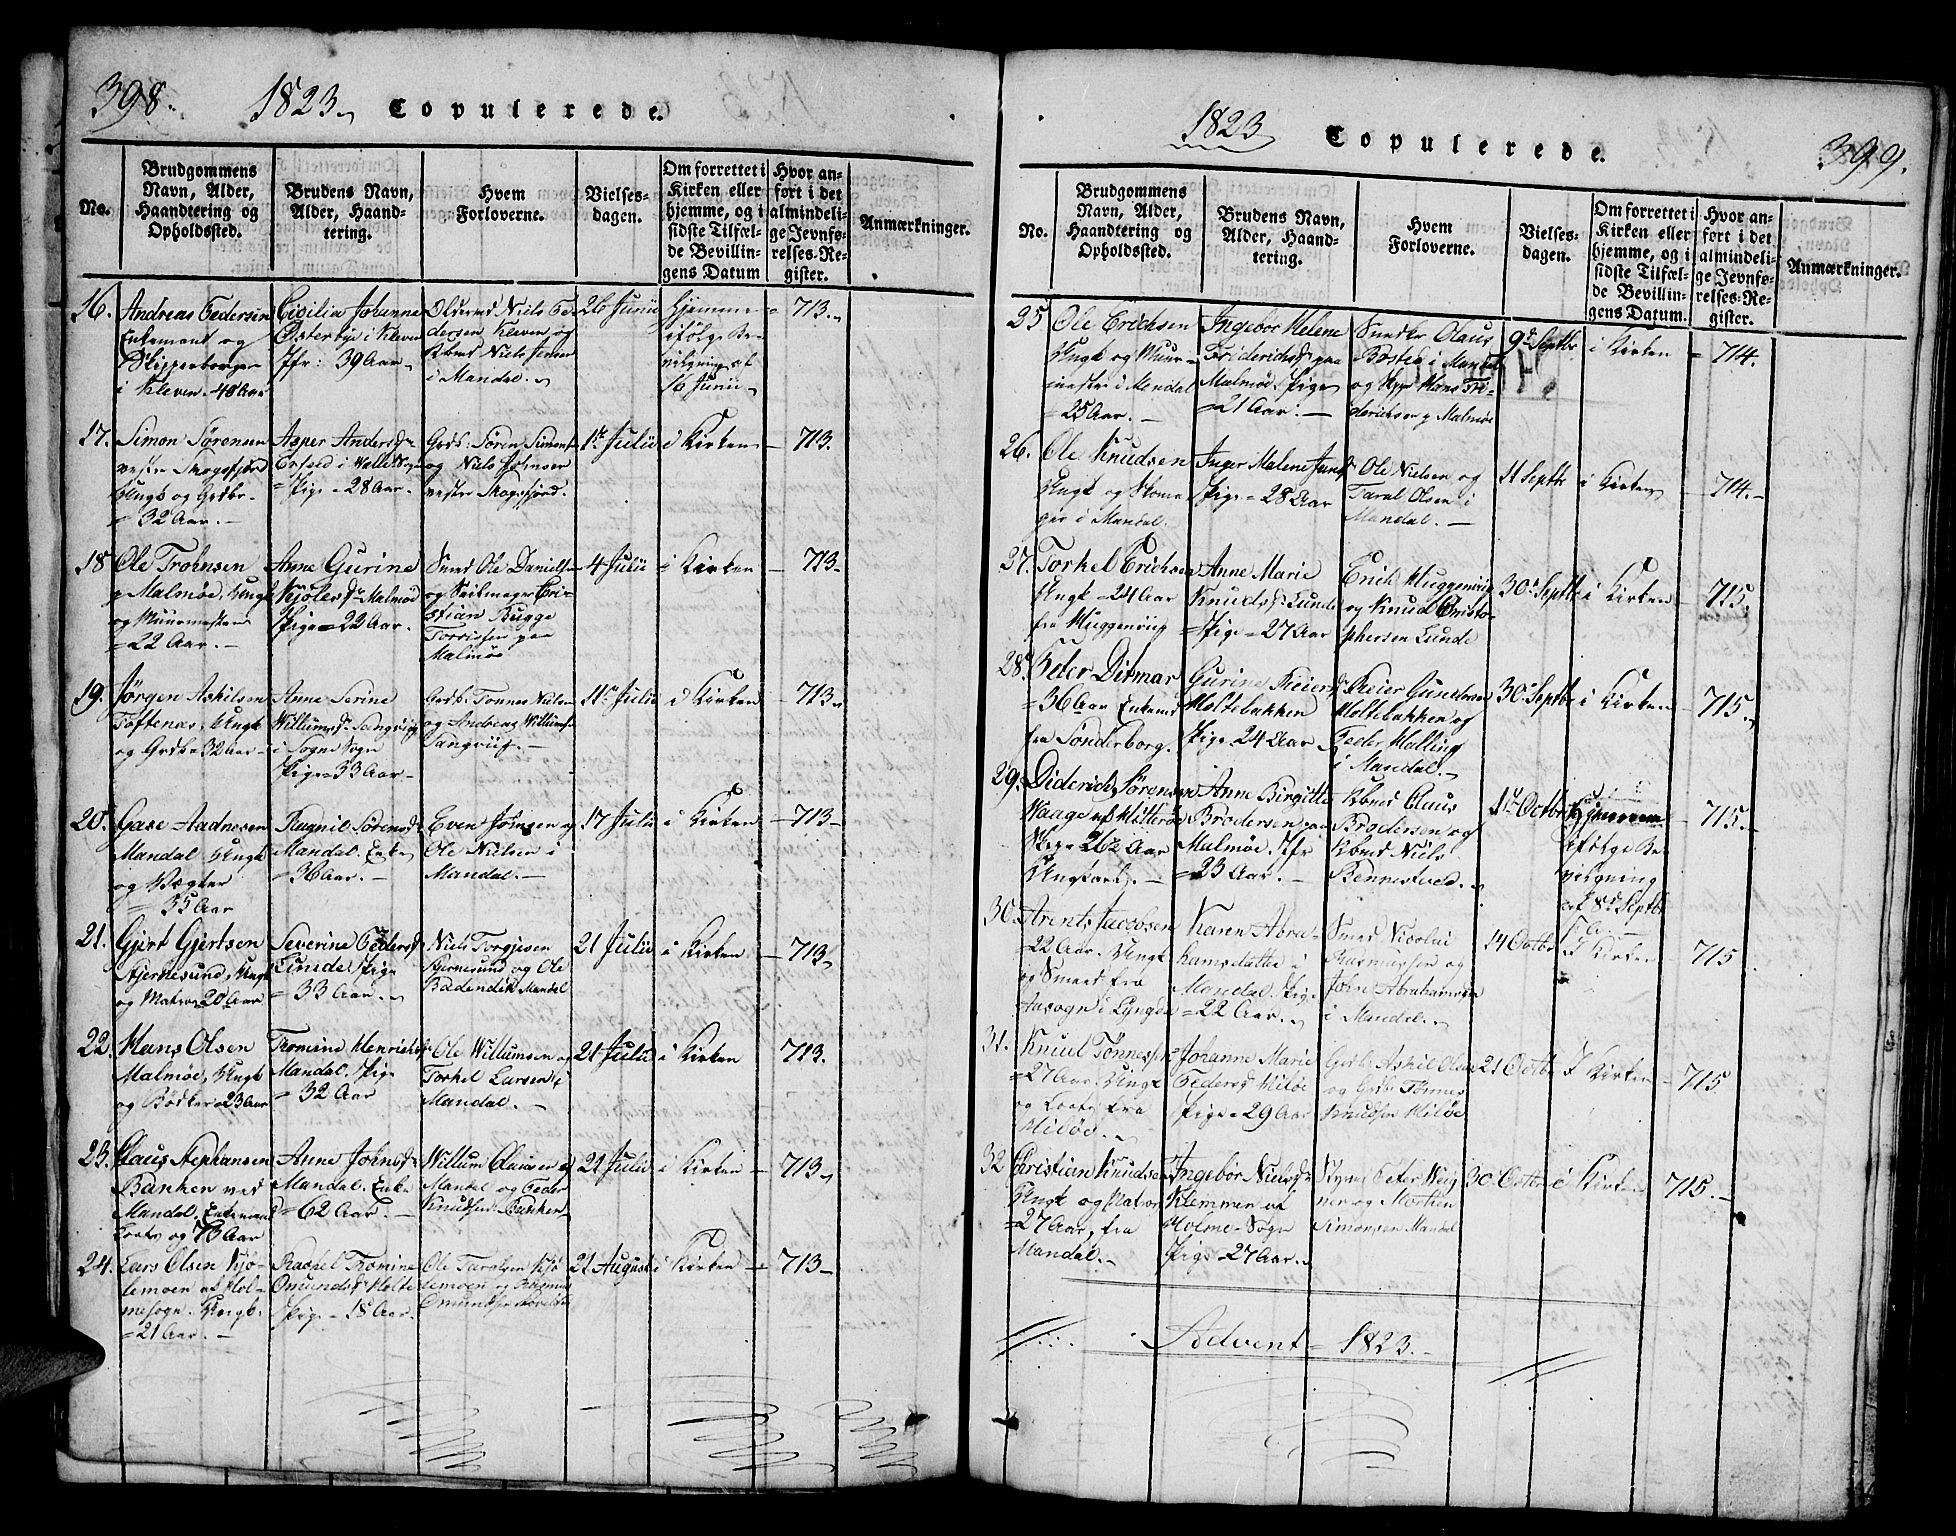 398. 1823. Copulerede.
No.
Brudgommens
Navn, Alder,
Haandtering og
Opholdssted.
Brudens Navn,
Alder, Haand-
tering.
Hvem
Forloverne.
Vielses-
dagen.
Om forrettet i
Kirken eller
hjemme, og i
sidste Tilfæl-
de Bevillin-
gens Datum
Hvor an-
ført i det
almindeli-
ge Jevnfø-
relses-Re-
gister.
Anmærkninger.
16. Andreas Pedersen
Enkemand og
Skipperborger
i Kleven. 48 Aar
Cicilia Johanne
Østerbye i Kleven
Jfr: 39 Aar
Niels Pe-
dersen Kleven og
Niels Jensen
i Mandal.
26 Junii
hjemme
ifølge Be-
vilgning af
16 Junii
713.
17. Simon Sørensen
vestre Skogsfjord
Ungk og Grdbr.
= 32 Aar.
Asper Andersd.
Pige = 28 Aar.
Grdb: Søren Simons.
og Niels Johnsen
vestre Skogsfjord.
1te Julii
i Kirken
713.
18. Ole Trohnsen
p Malmøe, Ungk
og Muurmester
= 22 Aar.
Anne Gurine
Malmøe
Pige = 22 Aar.
Smed Ole Daniels.
og Seilmager Cri-
stian Bugge
Torrissen paa
Malmøe
4 Julii
i Kirken
713.
19. Jørgen Askilsen
Toftenæs, Ungk
og Grdbr 32 Aar
Anne Serine
Willumsd.
i Sogne Sogn
Pige = 33 Aar
Grdb. Tønnes Nielsen
og Andreas Willums.
11te Julii
i Kirken
713.
20. Gase Aadnesen
Mandal Ungk
og Vægter
= 35 Aar
Ragnil Sørensd.
Mandal. Enke
= 36 Aar.
Even Johnsen og
Ole Nielsen i
Mandal.
17 Julii
i Kirken
713
21. Gjert Gjertsen
Hjernesund, Ungk
og Matros 20 Aar
Severine Pedersd.
Lunde Pige
= 33 Aar.
Niels Torgjesen
Hjernesund og Ole
Badendik Mandal
21 Julii
i Kirken
713
22. Hans Olsen
Malmøe, Ungk
og Bødker = 23 Aar
Tromine Henrichsd.
Mandal. Pige
= 32 Aar
Ole Willumsen og
Torkel Larsen i
Mandal.
21 Julii
i Kirken
713.
23. Claus Stephansen
Banken ved
Mandal. Enkemand
Loots og 73 Aar
Anne Johnsd.
Mandal. Enke
= 62 Aar.
Willum Clausen og
Mandal og Peder
Knudsen Banken
21 Julii
i Kirken
713
24. Lars Olsen Kjø-
lemoen af Hol-
mesogn. Ungk.
= 21 Aar.
Rachel Tromine
Omundsd. Holte
Pige = 18 Aar.
Ole Taralsen Kjø-
lemoen og
Omundsen
21 August
i Kirken
713
1823 Copulerede. 399.
No.
Brudgommens
Navn, Alder,
Haandtering og
Opholdssted.
Brudens Navn,
Alder, Haand-
tering.
Hvem
Forloverne.
Vielses-
dagen.
Om forrettet i
Kirken eller
hjemme, og i
sidste Tilfæl-
de Bevillin-
gens Datum.
Hvor an-
ført i det
almindeli-
ge Jevnfø-
relses-Re-
gister.
Anmærkninger.
25 Ole Erichsen
Ungk og Muur-
mester i Mandal
= 25 Aar.
Ingebor Helene
Friderichsd. paa
Malmøe. Pige
= 21 Aar.
Snedker Olaus
i Mandal
og Hans Fri-
derichsen p Malmøe
9de Septbr.
i Kirken
714.
26. Ole Knudsen
Ungk og Skoma-
ger i Mandal.
Inger Malene
Pige = 28 Aar
Ole Nielsen og
Taral Olsen i
Mandal.
11 Septbr
i Kirken
714.
27. Torkel Erichsen
Ungk = 24 Aar
fra Huggenviig
Anne Marie
Knudsd. Lunde
= Pige = 27 Aar
Erich Huggenviig
og Knud Christo-
phersen Lunde
30. Septbr
i Kirken
715.
28. Peter Ditmar
= 36 Aar Enkemd
fra Sønderborg.
Gurine Reiersd.
Holtebakken
Pige 24 Aar
Reier Gundersen
Holtebakken og
Peder Halling
i Mandal.
30. Septbr
i Kirken
715.
29. Diderich Sørensen
Waage af Hitterøe
26½ Aar
Ungkarl.
Anne Birgitte
Brodersen paa
Malmøe. Jfr
= 23 Aar.
Kbmd Claus
Brodersen og
Kbmd Niels
Bennestved.
1te Octbr
Hjemme
ifølge Be-
vilgning
af 8de Septbr
715.
30. Arent Jacobsen
= 22 Aar. Ungk
og Smed fra
Aasogn i Lyngdal
Karen Abra-
hamsdatter i
Mandal. Pige
= 22 Aar.
Smed Nicolai
Rasmussen og
John Abrahamsen
i Mandal.
14 Octbr
i Kirken
715
31. Knud Tønnessen
= 27 Aar. Ungk
og Loots fra
Hiløe.
Johanne Marie
Pedersd Hiløe
Pige = 29 Aar
Grdb. Askil Olsen
og Grdb. Tønnes
Knudsen Hiløe
21 Octbr
i Kirken
715
32 Christian Knudsen
Ungk og Matros
= 27 Aar, fra
Mandal.
Ingebor Nielsd.
Klemmer af
Holme-Sogn
Pige = 27 Aar.
Styrm. Peter Weig
ner og Morthen
Simonsen Mandal
30 Octbr
i Kirken
715.
Advent = 1823.